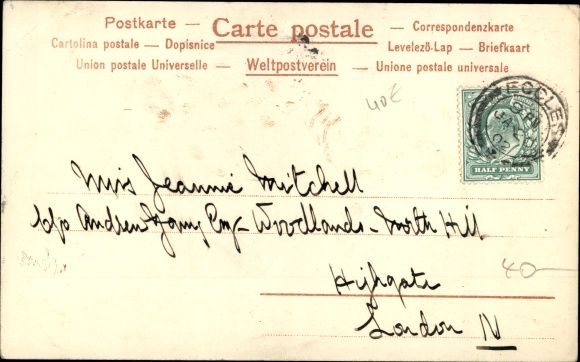 Postkarte — Carte postale — Correspondenzkarte
Cartolina postale — Dopisnice Levelező-Lap — Briefkaart
Union postale Universelle — Weltpostverein — Unione postale universale
40€
ECCLES
HALF PENNY
Miss Jeannie Mitchell
c/o Andrew Esq— Woodlands— North Hill
40—
Highgate
London N